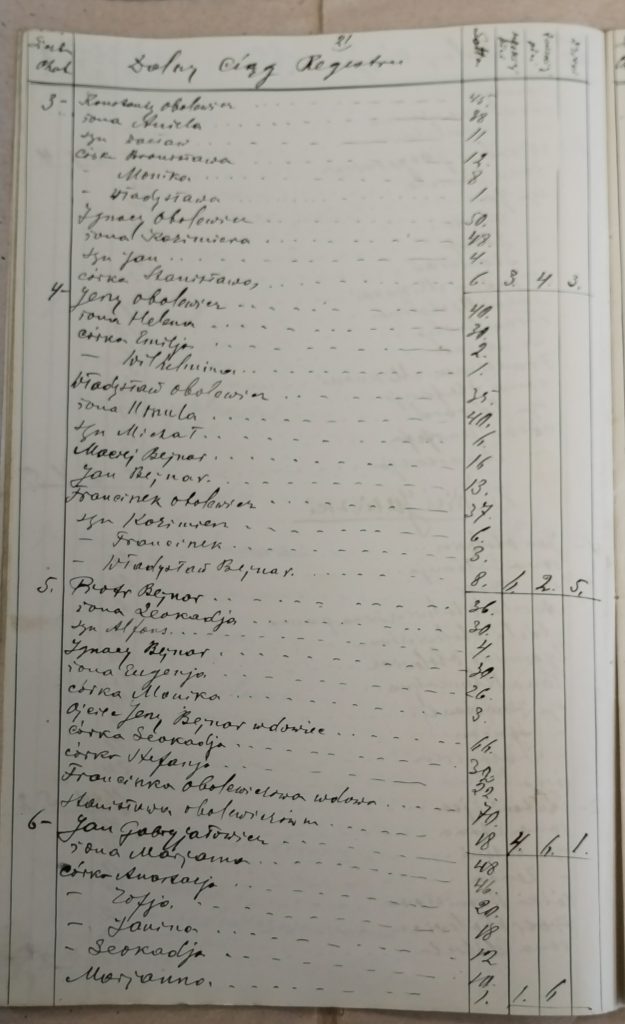 21
Dalny Ciąg Regestru
3- Konstanty Obolewicz 45.
żona Aniela 38
syn Wacław 11
córka Bronisława 12.
- Monika 8
- Władysława 1.
Ignacy Obolewicz 50.
żona Kazimiera 48.
syn Jan 4.
córka Stanisława, 6. 3. 4 3.
4- Jerzy Obolewicz 40.
żona Helena 30.
córka Emilja 2.
- Wilhelmina 1.
Władysław Obolewicz 35.
żona Urszula 40.
syn Michał 6.
Maciej Bejnar 16
Jan Bejnar. 13.
Franciszek Obolewicz 37.
syn Kazimierz 6.
- Franciszek 3.
- Władysław Bejnar. 8. 6. 2. 5.
5. Piotr Bejnar 36.
żona Leokadja 30.
syn Alfons 4.
Ignacy Bejnar 30.
żona Eugenja 26.
córka Monika 3.
Ojciec Jerzy Bejnar wdowiec 66.
córka Leokadja 32
córka Stefanja 32.
Franciszka Obolewiczowa wdowa 70.
Stanisława Obolewiczówna 18 4. 6. 1.
6- Jan Gabryjałowicz 48
żona Marjanna 46.
córka Anastazja 20.
- Zofja. 18
- Janina 12
- Leokadja 10.
Marjanna 1. 1. 6